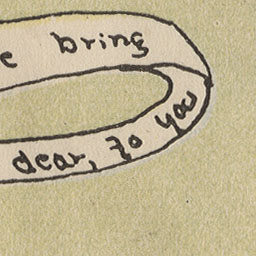 bring
dear, to you